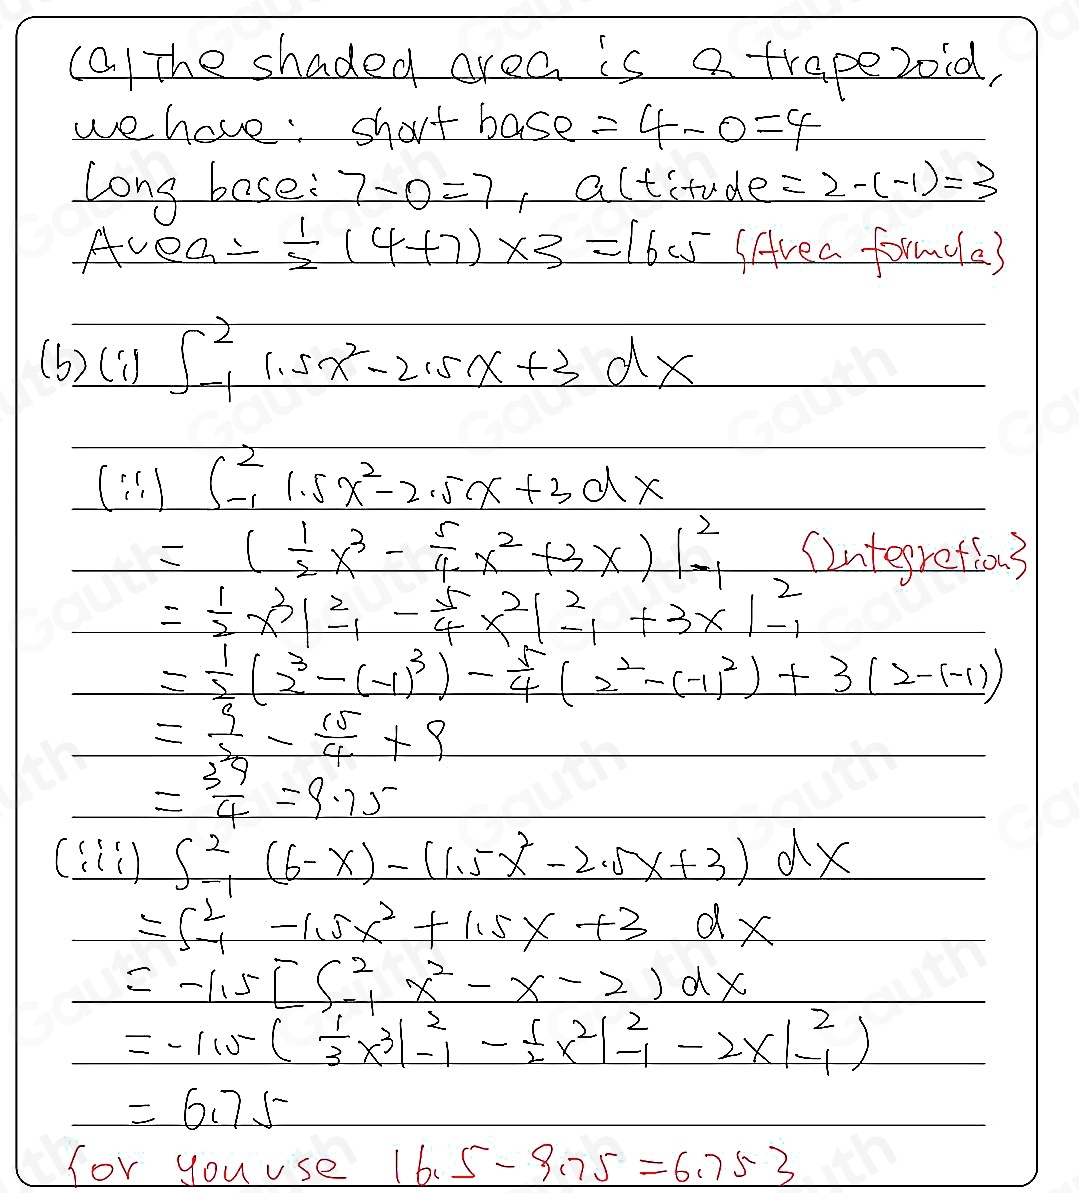 (a) The shaded area is a trapezoid,
we have: short base = 4-0=4
Long base: 7-0=7, altitude = 2-(-1)=3
Area = 1/2 (4+7) ×3 = 16.5 {Area formula}
(b)(i) ∫_{-1}^{2} 1.5x²-2.5x+3 dx
(ii) ∫_{-1}^{2} 1.5x²-2.5x+3 dx
= (1/2 x³ - 5/4 x² +3x)|_{-1}^{2} {Integration}
= 1/2 x³|_{-1}^{2} - 5/4 x²|_{-1}^{2} +3x|_{-1}^{2}
= 1/2 (2³-(-1)³) - 5/4 (2²-(-1)²) + 3(2-(-1))
= 9/2 - 15/4 + 9
= 39/4 = 9.75
(iii) ∫_{-1}^{2} (6-x)-(1.5x²-2.5x+3) dx
= ∫_{-1}^{2} -1.5x²+1.5x+3 dx
= -1.5[∫_{-1}^{2} x²-x-2) dx
= -1.5 (1/3 x³|_{-1}^{2} - 1/2 x²|_{-1}^{2} - 2x|_{-1}^{2})
= 6.75
{or you use 16.5-9.75=6.75}
Gauth